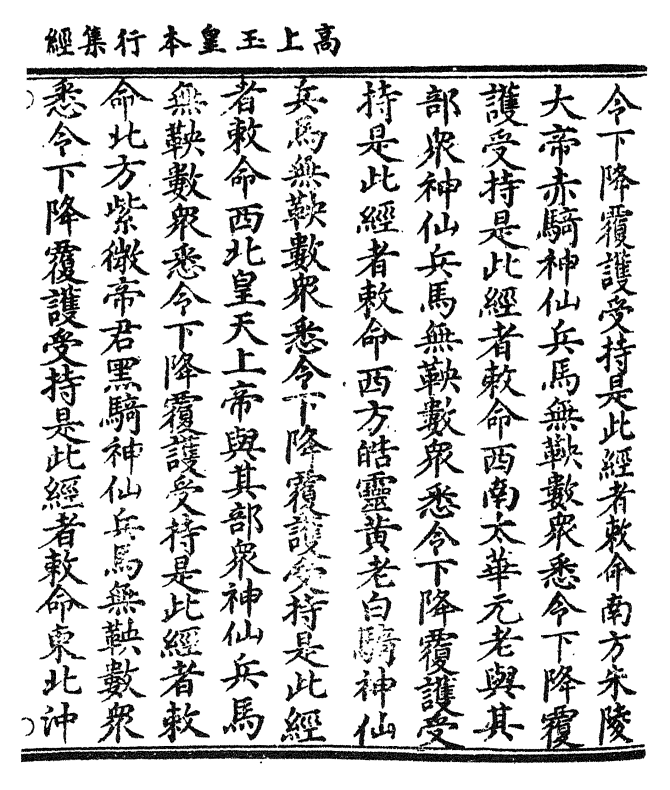 高上玉皇本行集經
令下降覆護受持是此經者敕命南方朱陵
大帝赤騎神仙兵馬無鞅數眾悉令下降覆
護受持是此經者敕命西南太華元老與其
部眾神仙兵馬無鞅數眾悉令下降覆護受
持是此經者敕命西方皓靈黃老白騎神仙
兵馬無鞅數眾悉令下降覆護受持是此經
者敕命西北皇天上帝與其部眾神仙兵馬
無鞅數眾悉令下降覆護受持是此經者敕
命北方紫微帝君黑騎神仙兵馬無鞅數眾
悉令下降覆護受持是此經者敕命東北沖